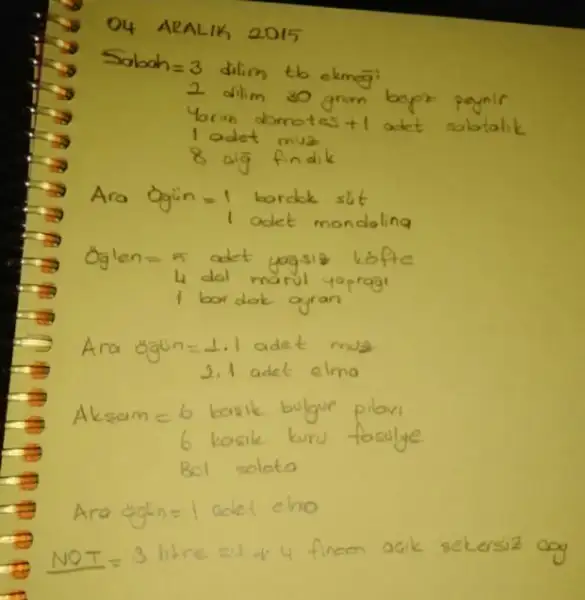 04 ARALIK 2015
Sabah = 3 dilim tb ekmeği
1 dilim 30 gram beyaz peynir
Yarım domates + 1 adet salatalık
1 adet muz
8 çiğ fındık
Ara Öğün = 1 bardak süt
1 adet mandalina
Öğlen = 5 adet yağsız köfte
4 dal marul yaprağı
1 bardak ayran
Ara öğün = 1. 1 adet muz
2. 1 adet elma
Akşam = 6 kaşık bulgur pilavı
6 kaşık kuru fasulye
Bol salata
Ara öğün = 1 adet elma
NOT = 3 litre su + 4 fincan açık şekersiz çay